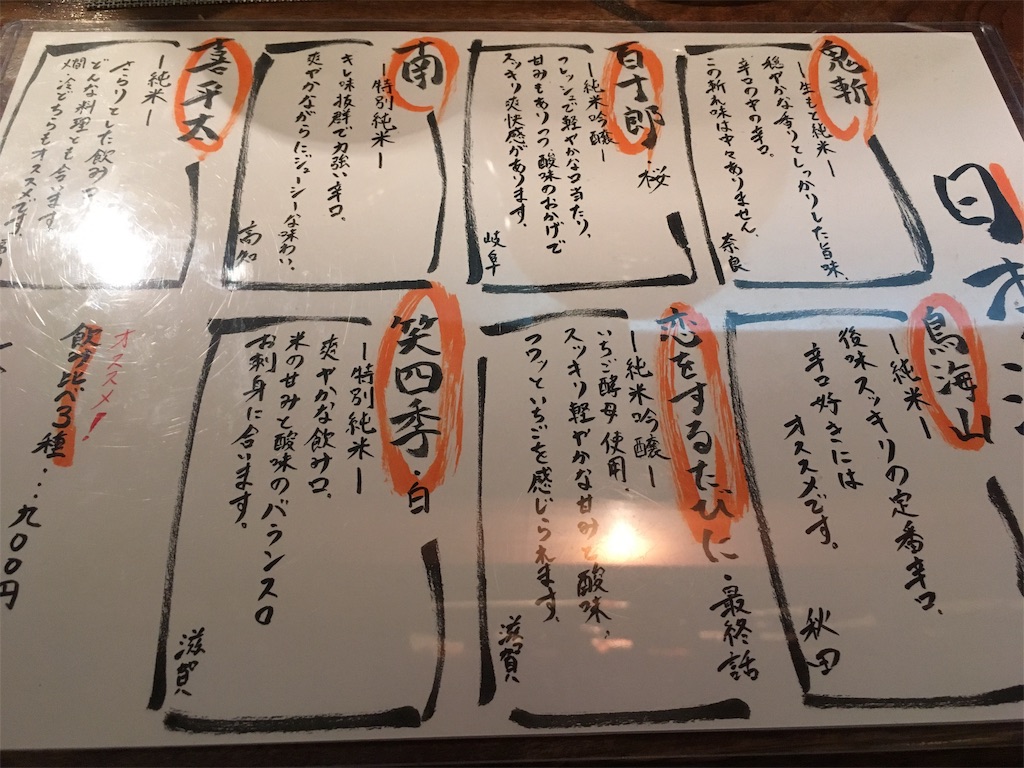 日
鬼斬
ー生もと純米ー
穏やかな香りとしっかりした旨味、
辛口の中の辛口。
この斬れ味は中々ありません。
奈良
百十郎 桜
ー純米吟醸ー
フレッシュで軽やかな口当たり。
甘みもありつつ、酸味のおかげで
スッキリ爽快感があります。
岐阜
南
ー特別純米ー
キレ味抜群で力強い辛口。
爽やかながらにジューシーな味わい。
高知
喜平太
ー純米ー
さらりとした飲み口。
どんな料理とも合います。
燗・冷どちらもオススメです。
鳥海山
ー純米ー
後味スッキリの定番辛口。
辛口好きには
オススメです。
秋田
恋をするたびに・最終話
ー純米吟醸ー
いちご酵母使用。
スッキリ軽やかな甘みと酸味。
フワッといちごを感じられます。
滋賀
笑四季・白
ー特別純米ー
爽やかな飲み口。
米の甘みと酸味のバランス◎
お刺身に合います。
滋賀
オススメ！
飲み比べ3種…九〇〇円